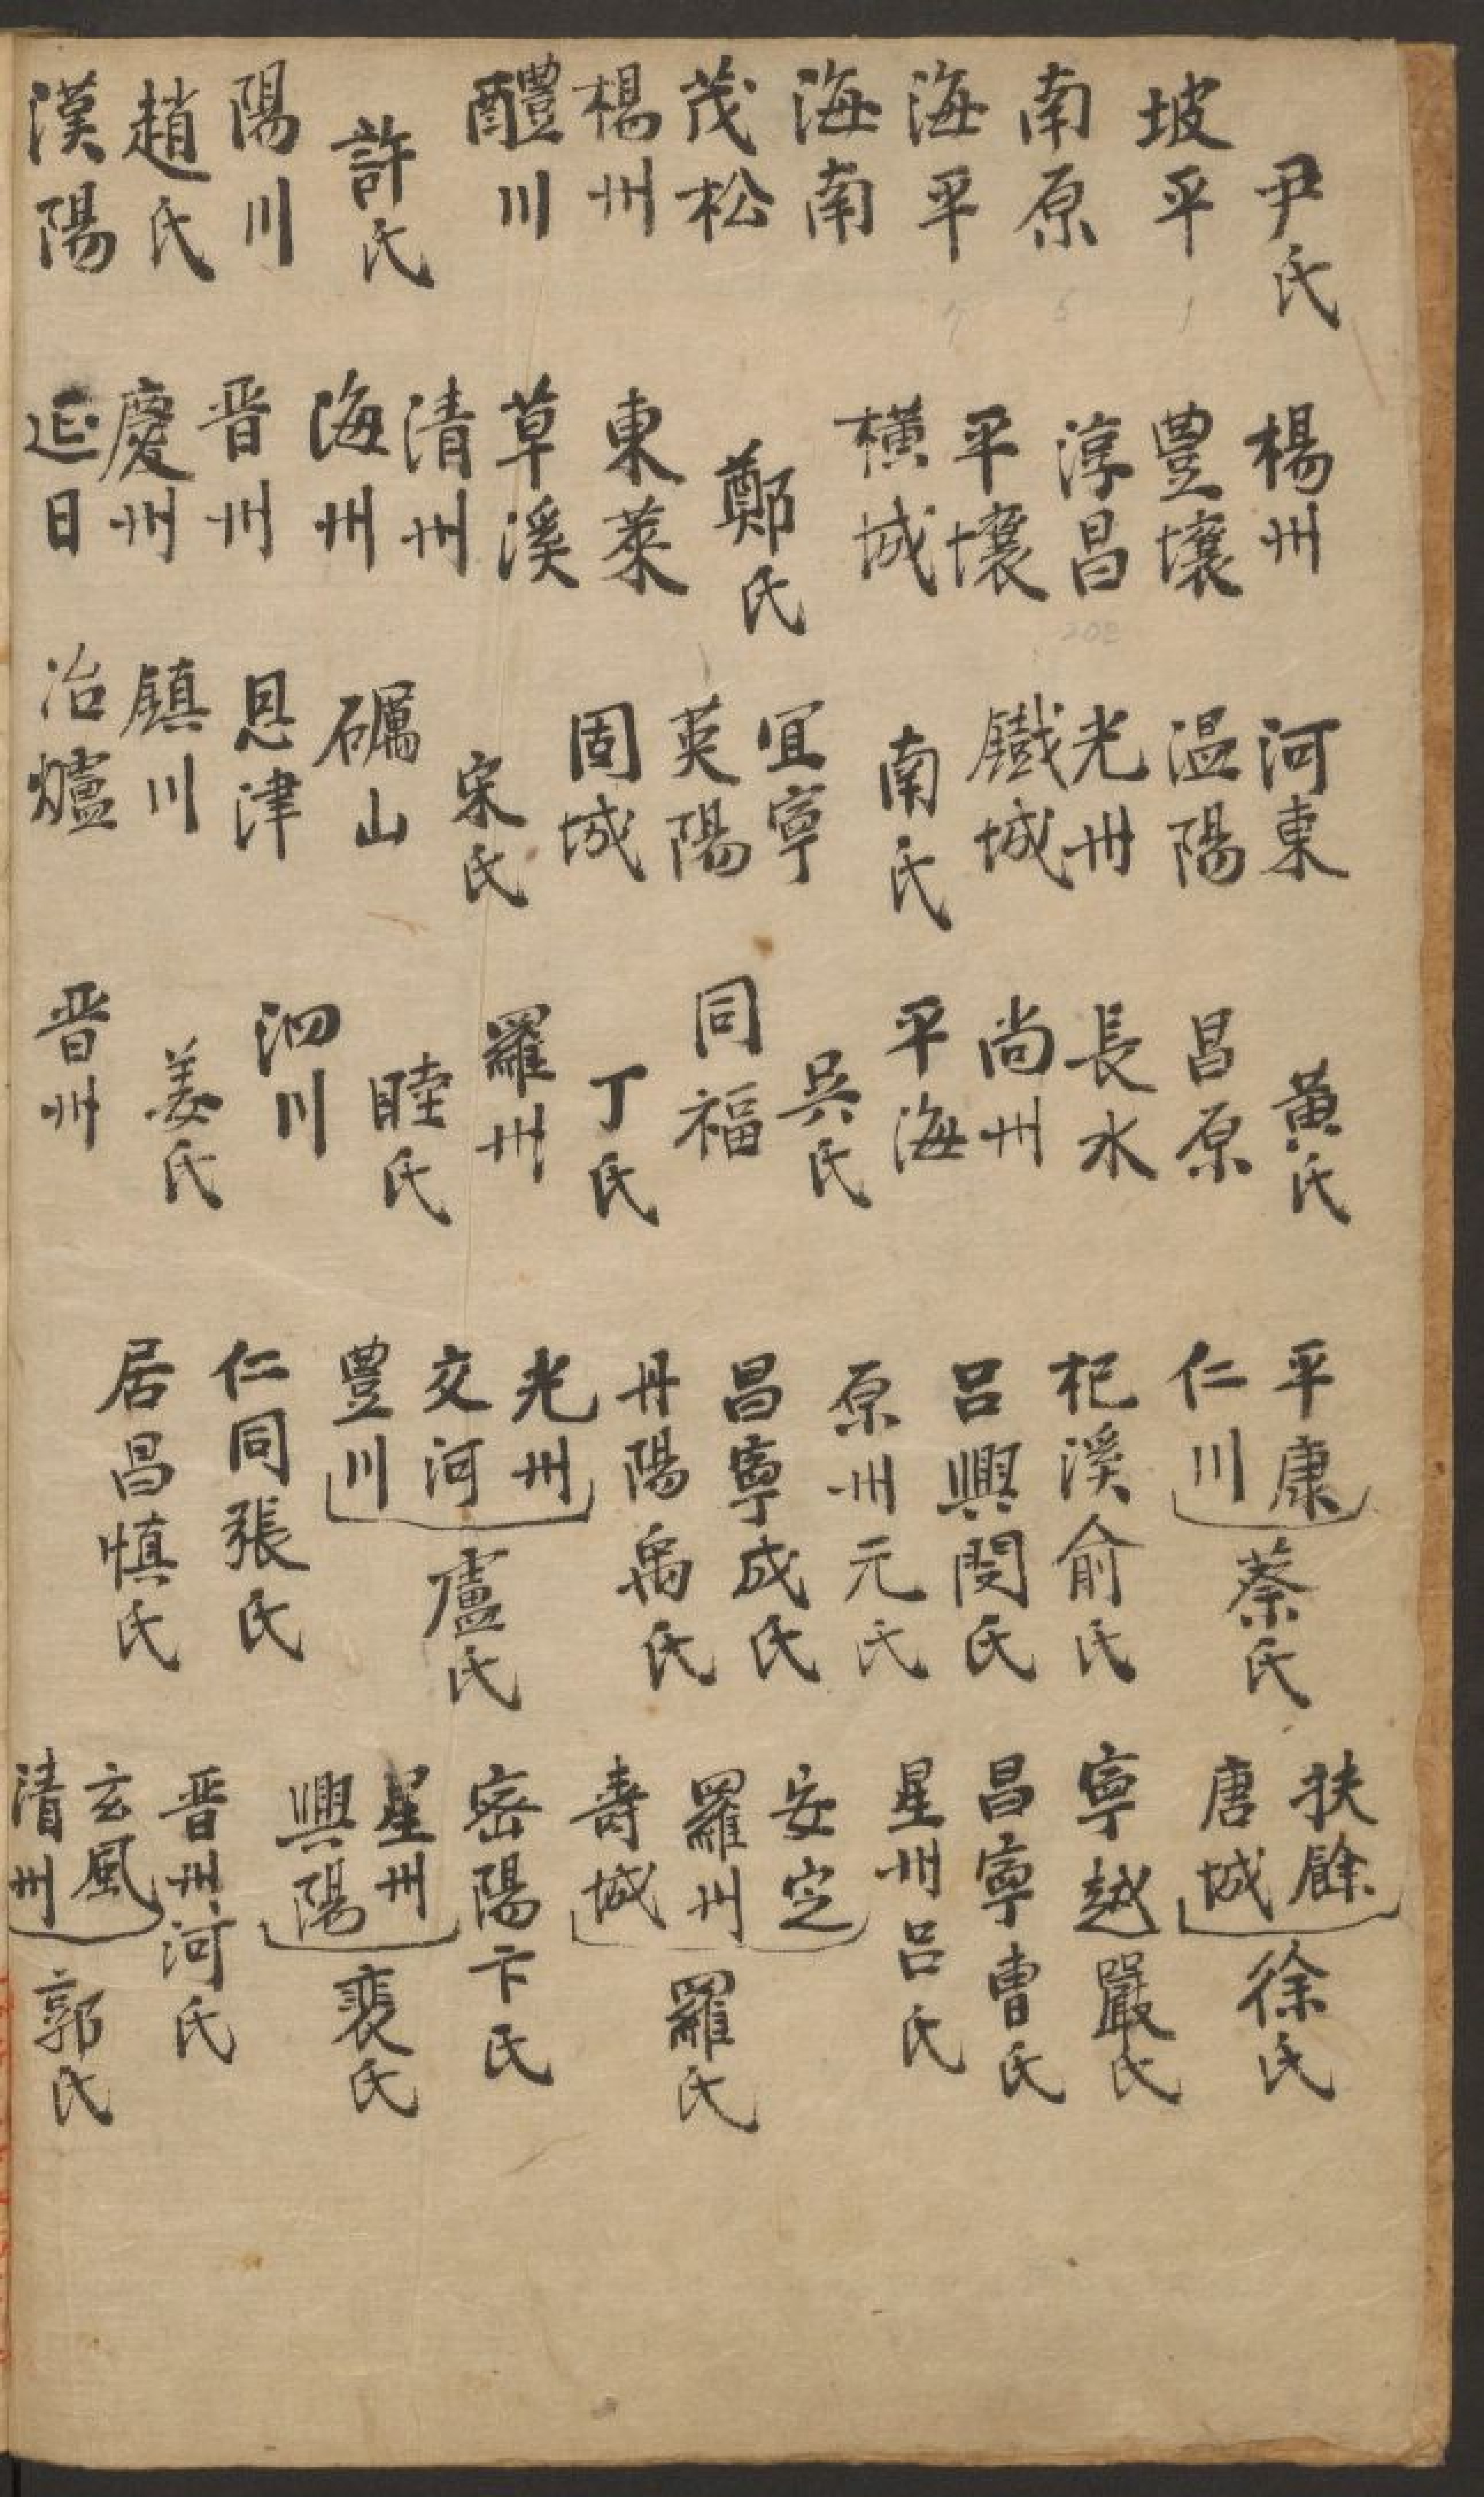 尹氏
坡平
南原
海平
海南
茂松
楊州
醴川
許氏
陽川
趙氏
漢陽
楊州
豊壤
淳昌
平壤
橫城
鄭氏
東萊
草溪
清州
海州
晋州
慶州
延日
河東
温陽
光州
鐵城
南氏
宜寧
英陽
固城
宋氏
礪山
恩津
鎮川
冶爐
黃氏
昌原
長水
尚州
平海
吳氏
同福
丁氏
羅州
睦氏
泗川
姜氏
晋州
平康
仁川
蔡氏
杞溪俞氏
呂興閔氏
原州元氏
昌寧成氏
丹陽禹氏
光州
交河
豊川
盧氏
仁同張氏
居昌慎氏
扶餘
唐城
徐氏
寧越嚴氏
昌寧曺氏
星州呂氏
安定
羅州
壽城
羅氏
密陽卞氏
星州
興陽
裵氏
晋州河氏
玄風
清州
郭氏